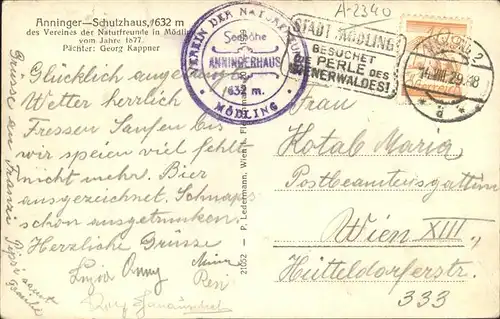 A-2340
Anninger-Schutzhaus, 632 m
des Vereines der Naturfreunde in Mödling
vom Jahre 1877.
Pächter: Georg Kappner
VEREIN DER NATURFREUNDE
Seehöhe
ANNINGERHAUS
632 m.
MÖDLING
STADT MÖDLING
BESUCHET
DIE PERLE DES
WIENERWALDES!
MÖDLING 2
14. VIII. 29. 18
d
Glücklich angelangt
Wetter herrlich
Fressen Saufen bis
wir speien viel fehlt
nicht mehr. Bier
ausgezeichnet. Schnaps
schon ausgetrunken.
Herzliche Grüsse
Anny
Resi
Grüsse an Franzi
21052 - P. Ledermann, Wien I.
Frau
Kotab Maria
Postbeamtensgattin
Wien XIII,
Hütteldorferstr.
333